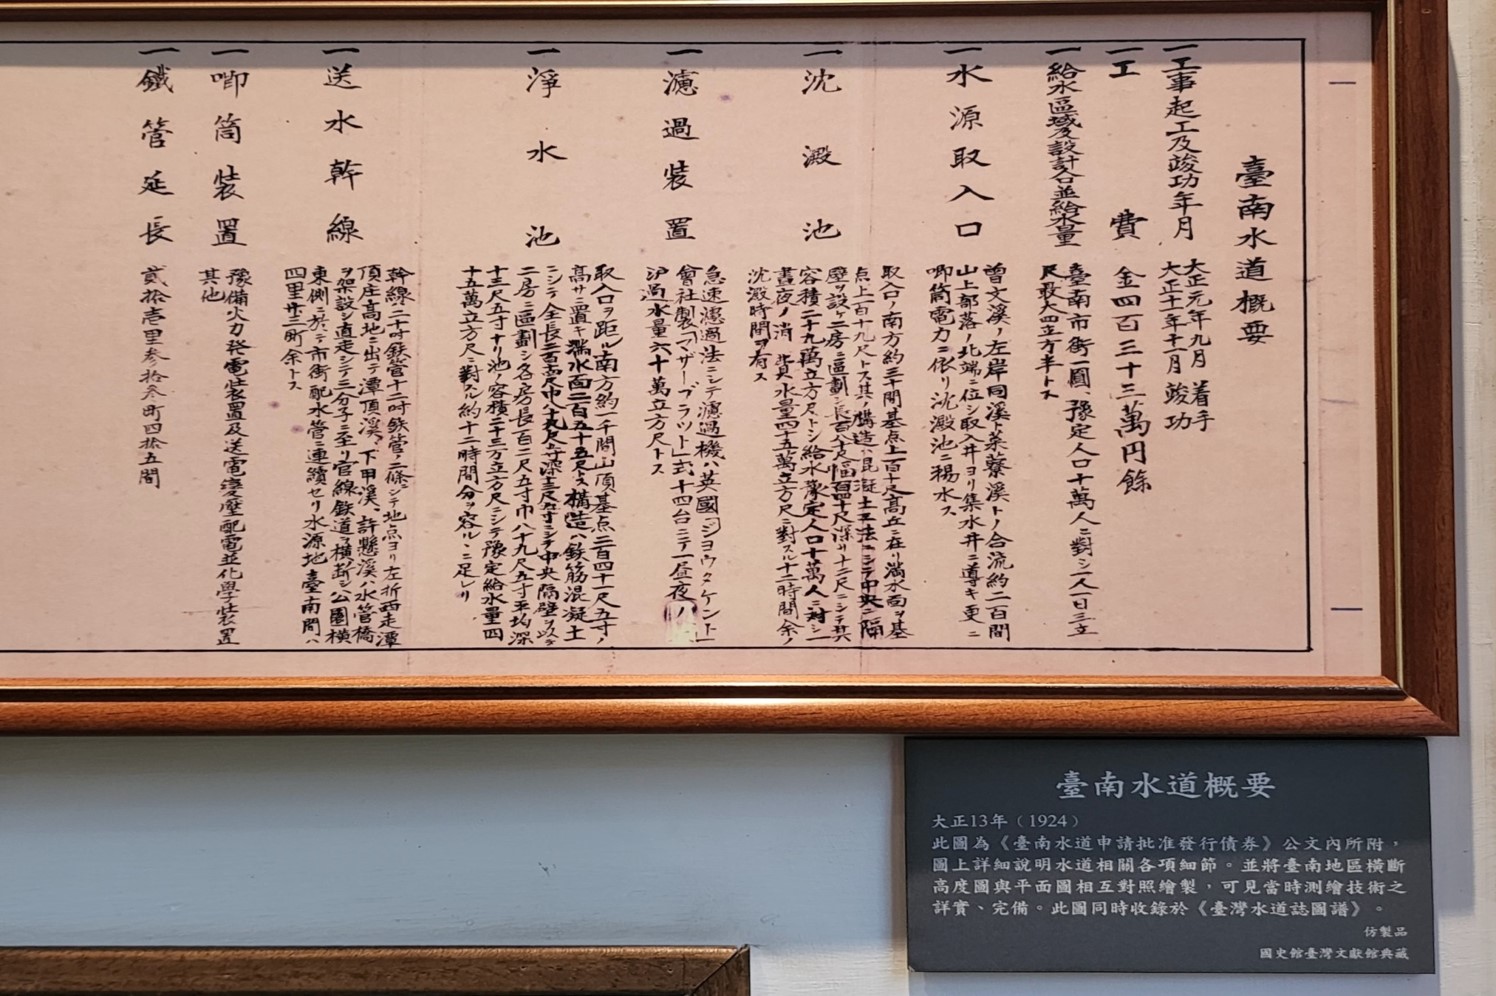 臺南水道概要
一工事起工及竣功年月
大正元年九月 着手
大正十一年十月 竣功
一工費 金四百三十三萬円餘
一給水區域及設計人口並給水量
臺南市街一圓、豫定人口十萬人ニ對シ一人一日三立
尺最大四立方半トス
一水源取入口
曽文溪ノ左岸同溪ト菜藔溪トノ合流約二百間
山上部落ノ北端ニ位シ取入井ヨリ集水井ニ導キ更ニ
喞筒電力ニ依リ沈澱池ニ揚水ス
一沈澱池
取入口ノ南方約三十間基点上百十尺高丘ニ在リ満水面ヲ基
点上百十九尺トス其ノ構造ハ混凝土工法ニシテ中央ニ隔
壁ヲ設ケ二房ニ區劃シ
容積二十九萬立方尺トシ給水豫定人口十萬人ニ対シ一
晝夜ノ消費水量四十五萬立方尺ニ對スル十二時間余ノ
沈澱時間ヲ有ス
一濾過装置
急速濾過法ニシテ濾過機ハ英國「ジヨウタケント」
會社製「マザープラツト」式十四台ニテ一昼夜ノ
沪過水量六十萬立方尺トス
一淨水池
取入口ヲ距ル南方約一千間山頂基点二百四十一尺五寸ノ
高サニ置キ満水面二百五十五尺トス構造ハ鉄筋混凝土
ニシテ全長二百
二房ニ區劃シ各房長百二尺五寸巾八十九尺五寸平均深
十三尺五寸ナリ池ノ容積二十三万立方尺ニシテ豫定給水量四
十五萬立方尺ニ對スル約十二時間分ヲ容ルヽニ足レリ
一送水幹線
幹線ハ二十吋鉄管十二吋鉄管ノ二條ニシテ地点ヨリ左折西走潭
頂庄高地ニ出テ潭頂溪、下甲溪、許懸溪ハ水管橋
ヲ架設シ直走シテ三分子ニ至リ官線鉄道ヲ横断シ公園横
東側ニ於テ市街配水管ニ連續セリ水源地臺南間ハ
四里廿三町余トス
一喞筒装置
豫備火力發電装置及送電変壓配電並化學装置
其他
一鐵管延長
貳拾壱里参拾参町四拾五間
臺南水道概要
大正13年（1924）
此圖為《臺南水道申請批准發行債券》公文內所附，
圖上詳細說明水道相關各項細節。並將臺南地區橫斷
高度圖與平面圖相互對照繪製，可見當時測繪技術之
詳實、完備。此圖同時收錄於《臺灣水道誌圖譜》。
仿製品
國史館臺灣文獻館典藏